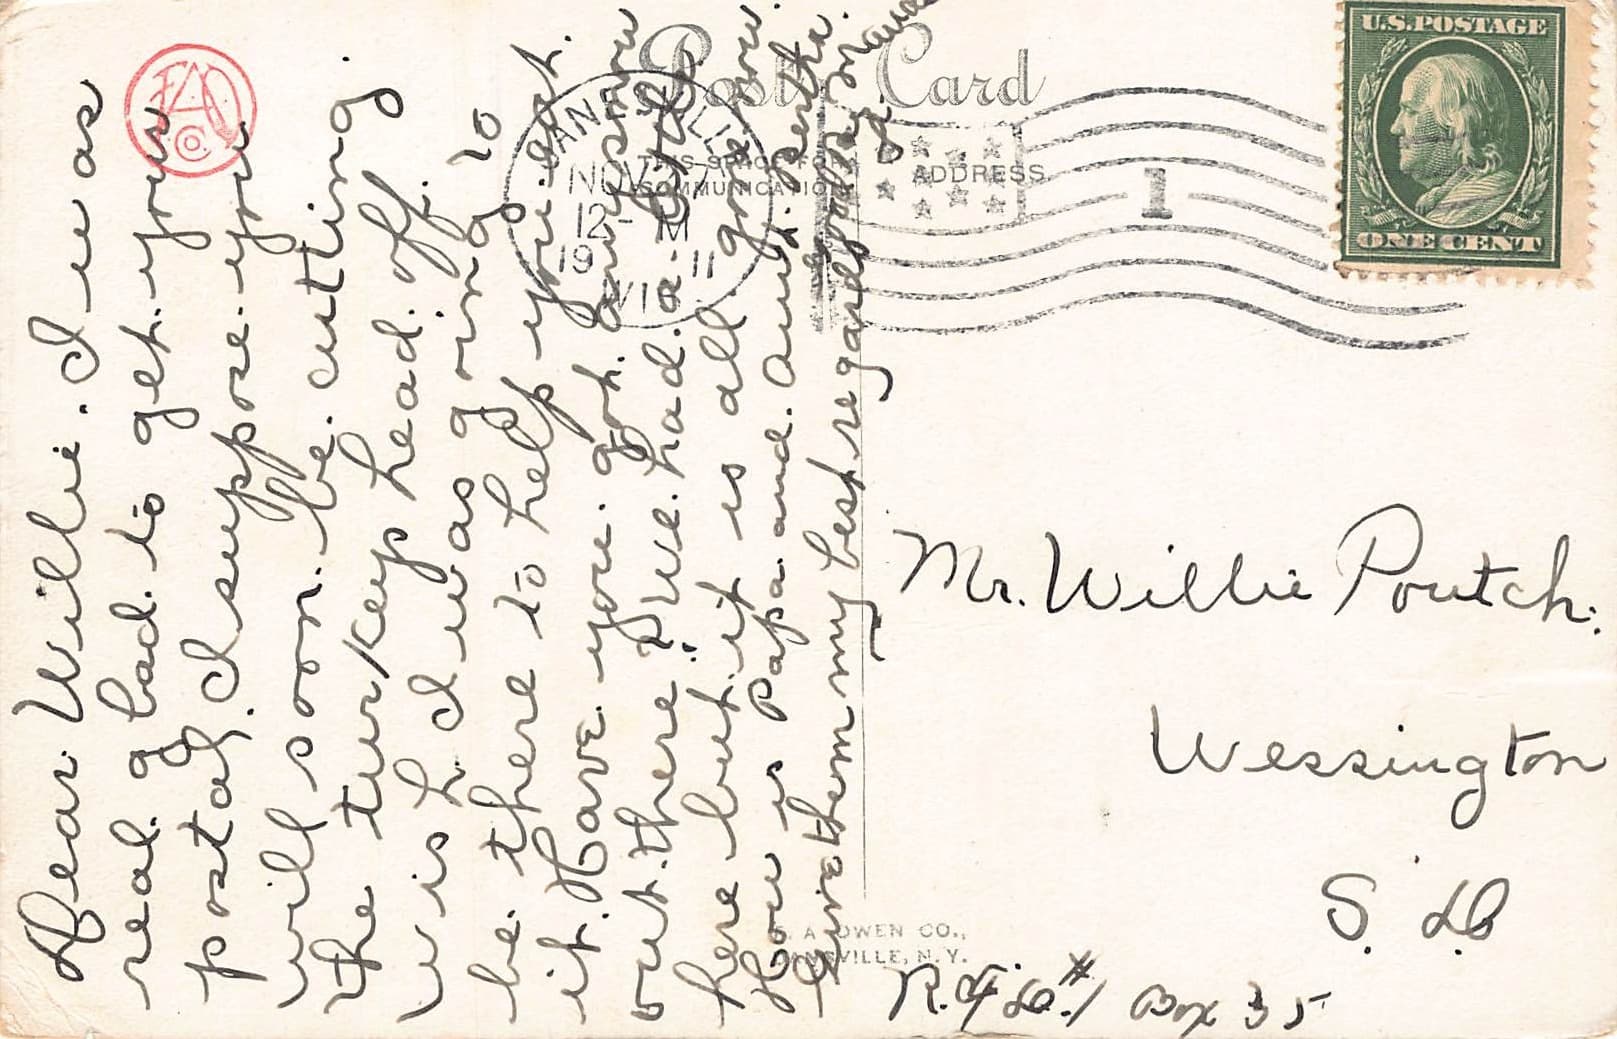 Post Card
THIS SPACE FOR
COMMUNICATION
ADDRESS
U.S. POSTAGE
ONE CENT
JANESVILLE
NOV
12- M
19 11
WIS
1
FAO
Co.
Dear Willie. I was
real glad to get your
postal, I suppose you
will soon be cutting
the turkey head off.
wish I was going to
be there to help you eat
it. Have you got any snow
out there? We had a little
here but it is all gone now.
How is Papa and Aunt Bertha.
Give them my best regards
Mr. Willie Poutch.
Wessington
S. D.
R.F.D. #1 Box 35
F. A. OWEN CO.,
DANSVILLE, N.Y.